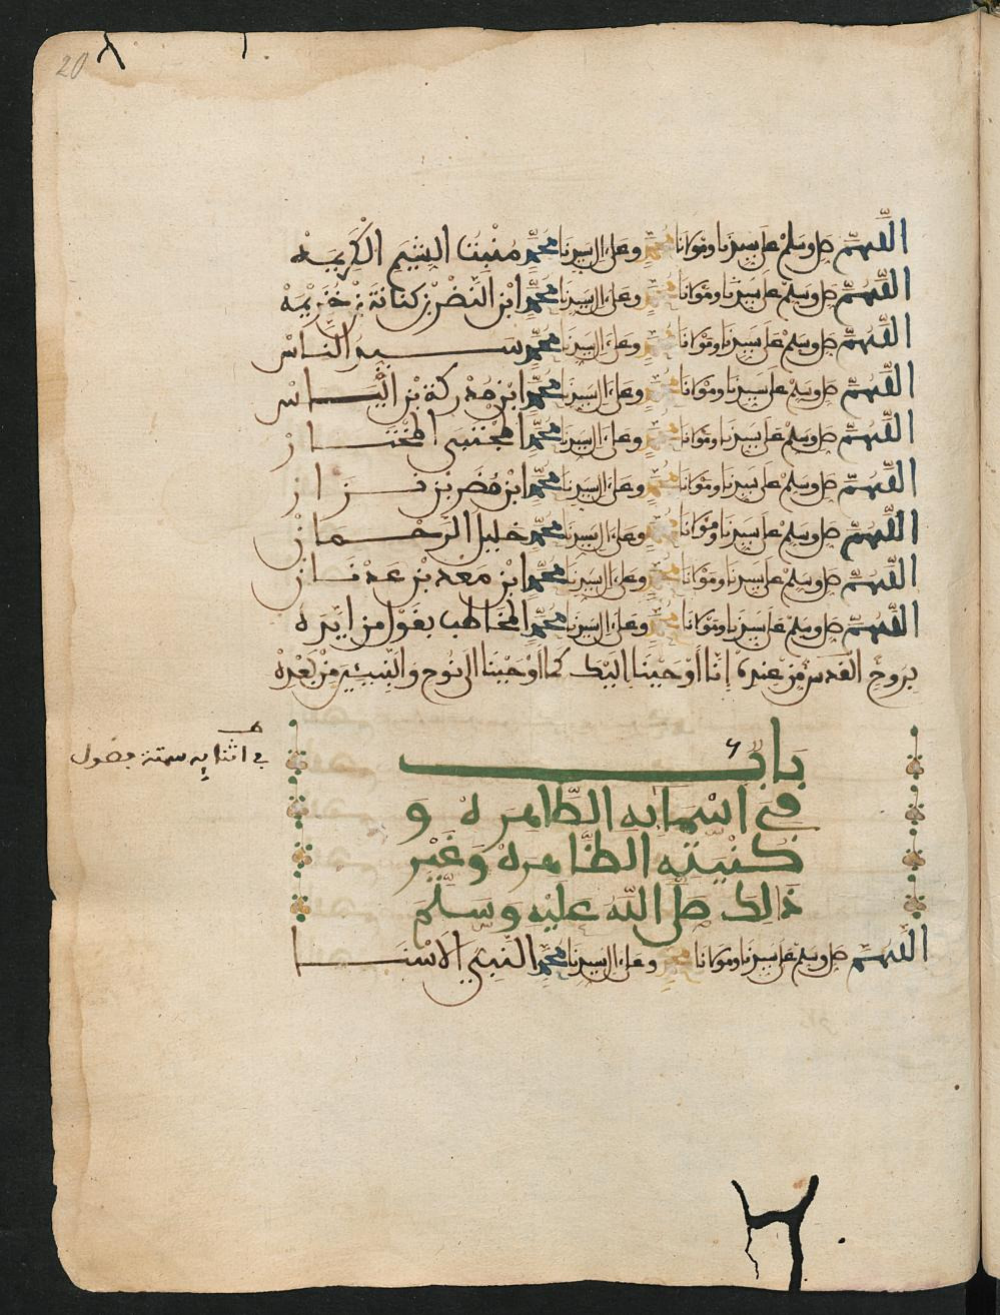 20
اللهم صل وسلم على سيدنا ومولانا محمد وعلى ءال سيدنا محمد منبت الشيم الكريمه
اللهم صل وسلم على سيدنا ومولانا محمد وعلى ءال سيدنا محمد ابن النضر بن كنانة بن خزيمه
اللهم صل وسلم على سيدنا ومولانا محمد وعلى ءال سيدنا محمد سيد الناس
اللهم صل وسلم على سيدنا ومولانا محمد وعلى ءال سيدنا محمد ابن مدركة بن الياس
اللهم صل وسلم على سيدنا ومولانا محمد وعلى ءال سيدنا محمد المجتبى المختار
اللهم صل وسلم على سيدنا ومولانا محمد وعلى ءال سيدنا محمد ابن مضر بن نزار
اللهم صل وسلم على سيدنا ومولانا محمد وعلى ءال سيدنا محمد خليل الرحمان
اللهم صل وسلم على سيدنا ومولانا محمد وعلى ءال سيدنا محمد ابن معد بن عدنان
اللهم صل وسلم على سيدنا ومولانا محمد وعلى ءال سيدنا محمد المخاطب بقول من ايده
بروح القدس من عنده إنا أوحينا اليك كما أوحينا الى نوح والنبيين من بعده
باب
في اسمايه الطاهره و
كنيته الطاهره وغير
ذلك صلى الله عليه وسلم
في اثنايه ستة فصول
اللهم صل وسلم على سيدنا ومولانا محمد وعلى ءال سيدنا محمد النبي الاسنا